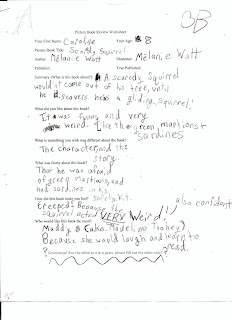 A
3B
Picture Book Review Worksheet
Your First Name: Caroline Your Age: 8
Picture Book Title: Scaredy Squirrel
Author: Melanie Watt Illustrator: Melanie Watt
Publisher: Year Published:
Summary (What is this book about?) A scaredy squirrel
would'nt come out of his tree, until
he discovers he's a gliding squirrel!
What did you like about this book?
It was funny and very
weird. like the green martians &
sardines
What is something you wish was different about the book?
The character, and the
story.
What was funny about this book?
That he was afraid
of green martians, and
had sardines in his
safety kit.
How did this book make you feel?
Creeped! Because the
squirrel acted VERY weird!
also confident
Who would like this book the most?
Maddy
Because she would laugh and learn to
read.